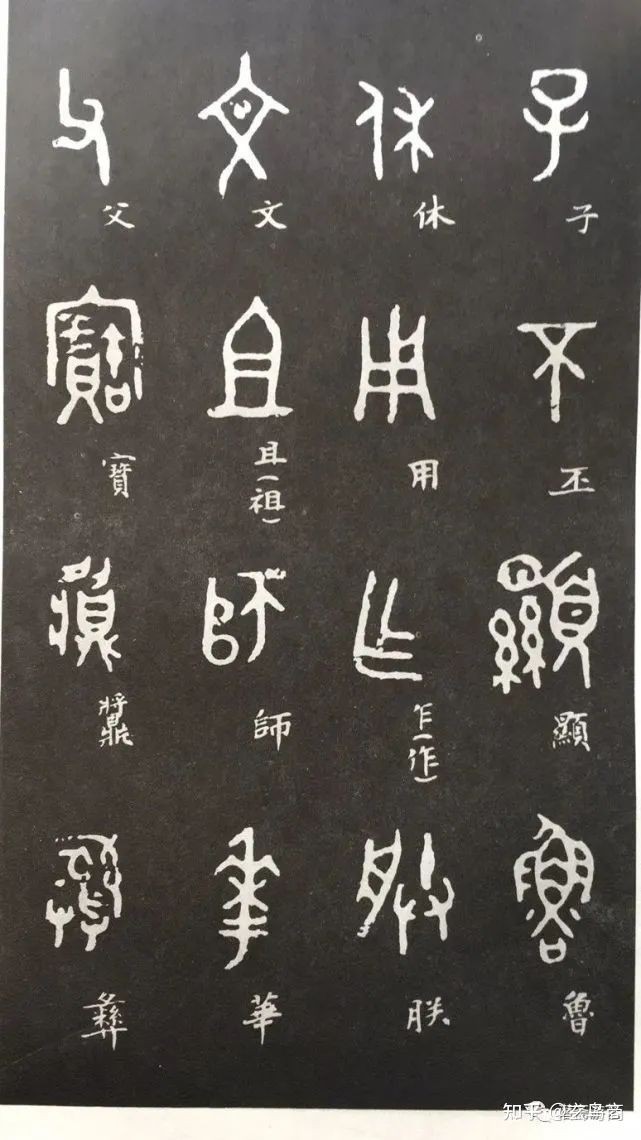 子 丕 顯 魯
休 用 乍(作) 朕
文 且(祖) 師 華
父 寶 䵼 彝
知乎 @玄鸟商